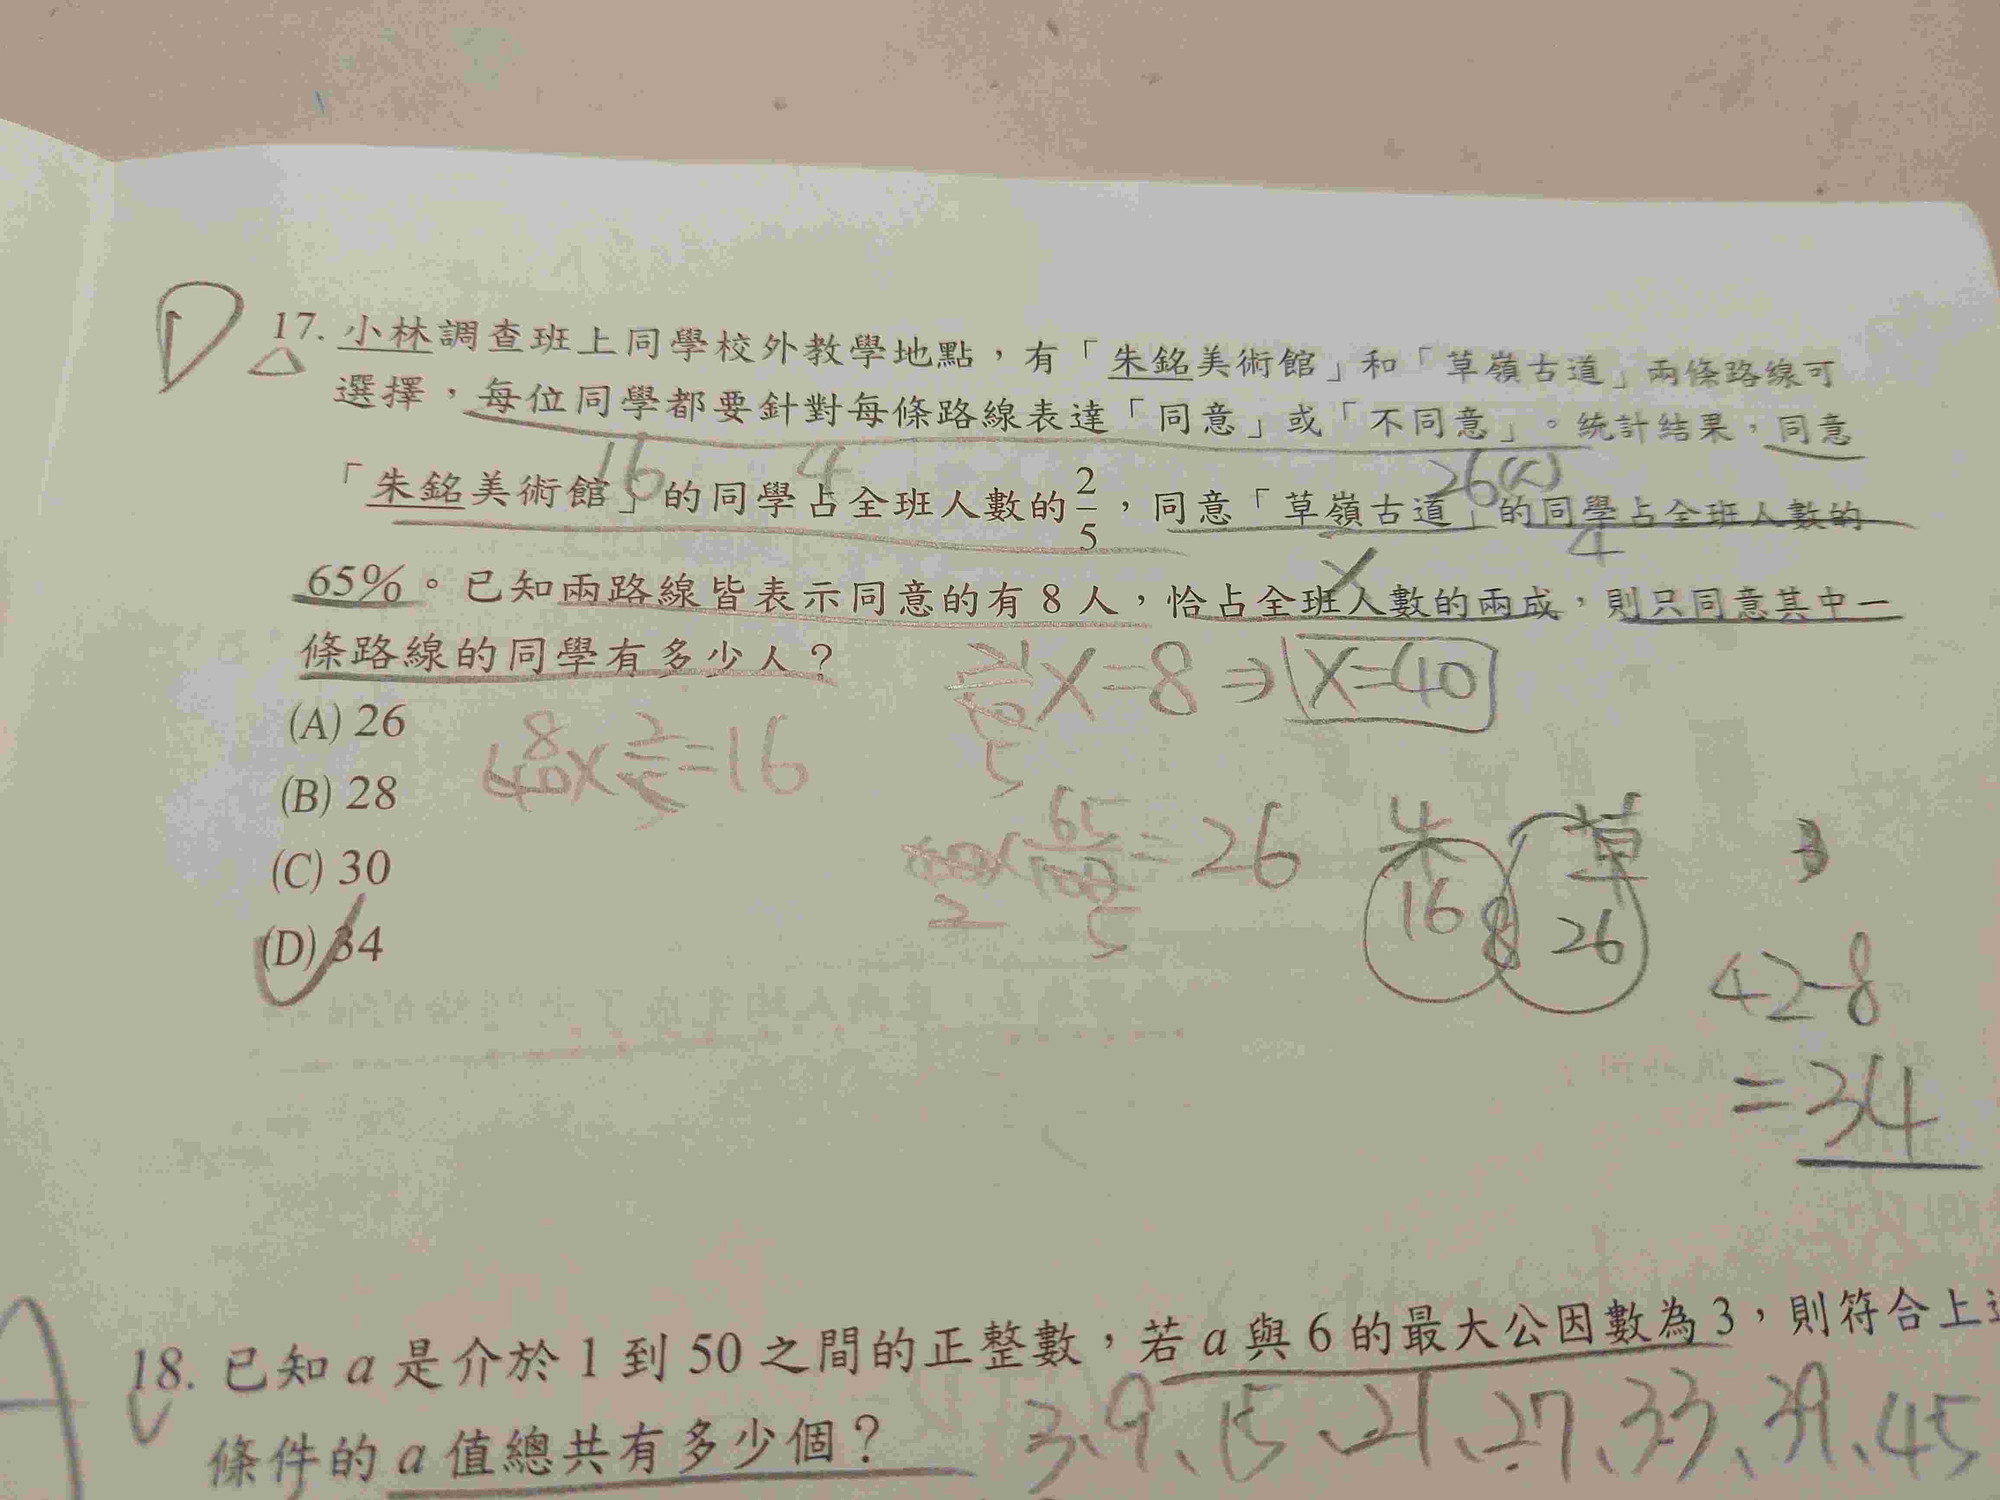 D
17. 小林調查班上同學校外教學地點，有「朱銘美術館」和「草嶺古道」兩條路線可
選擇，每位同學都要針對每條路線表達「同意」或「不同意」。統計結果，同意
16 4 26(人)
「朱銘美術館」的同學占全班人數的2/5，同意「草嶺古道」的同學占全班人數的
4
65%。已知兩路線皆表示同意的有 8 人，恰占全班人數的兩成，則只同意其中一
X
條路線的同學有多少人？
X=8⇒X=40
5
(A) 26
40×2/5=16
8
(B) 28
(C) 30
40×65/100=26
2 5
朱 草
16 8 26
(D) 34
42-8
=34
A
18. 已知 a 是介於 1 到 50 之間的正整數，若 a 與 6 的最大公因數為 3，則符合上
條件的 a 值總共有多少個？
3、9、15、21、27、33、39、45